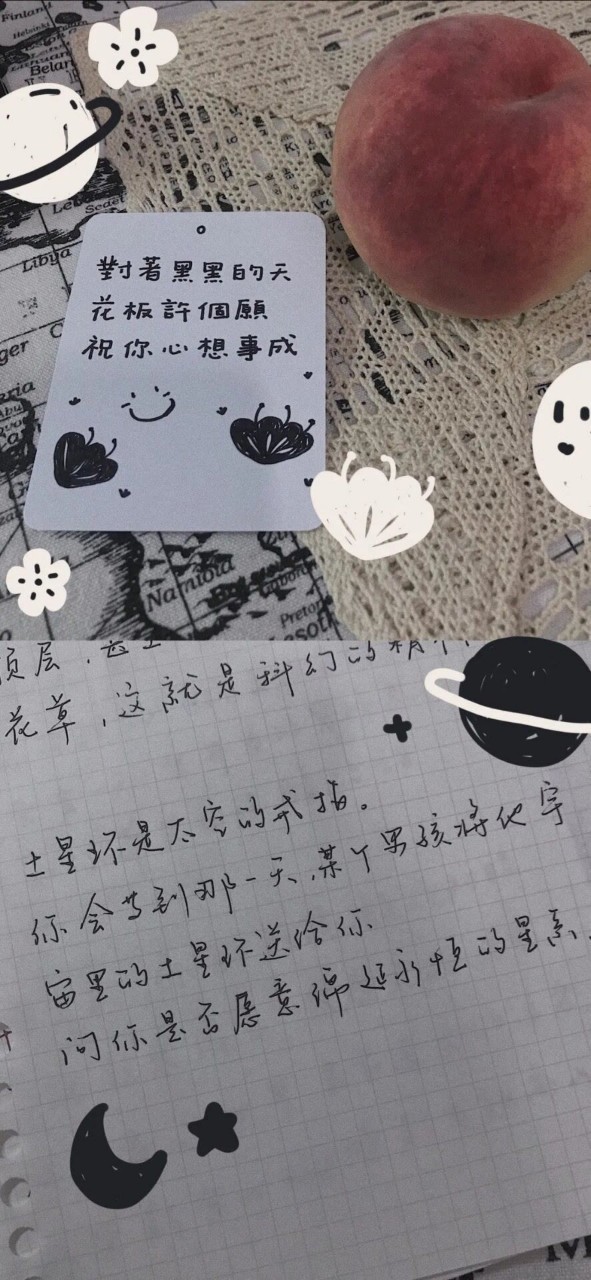 Finland
Helsinki
Belar
Libya
對著黑黑的天
花板許個願
祝你心想事成
Namibia
Pretor
Lesoth
顶层，甚至
花草，这就是科幻的精
土星环是太空的戒指。
你会等到那一天，某个男孩将他宇
宙里的土星环送给你
问你是否愿意绵延永恒的星系